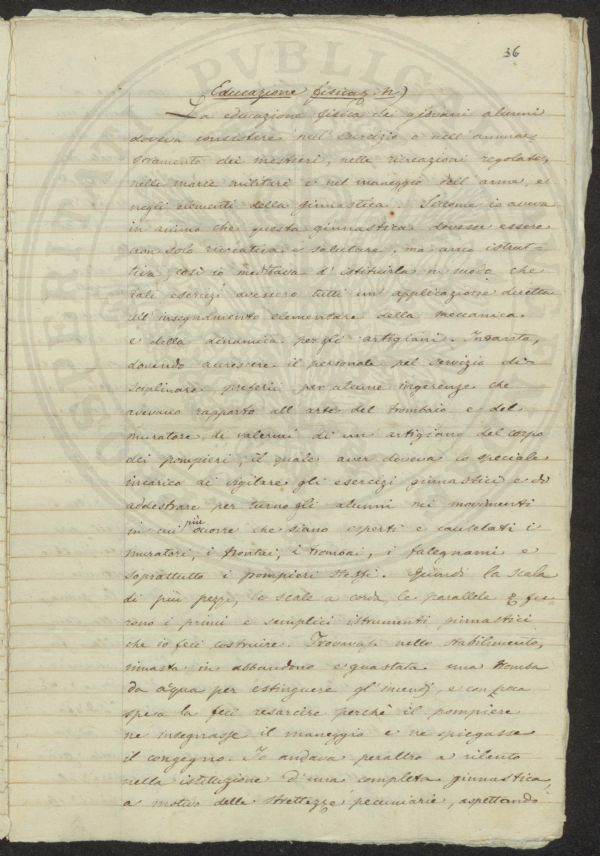 36
Educazione fisica
La educazione fisica dei giovani alunni
doveva consistere nell' esercizio o nell' ammae-
stramento dei mestieri, nelle ricreazioni regolate,
nelle marce militari e nel maneggio dell' arma, e
negli elementi della ginnastica. Siccome io aveva
in animo che questa ginnastica dovesse essere
non solo ricreativa e salutare, ma anco istrut-
tiva così io meditava d' istituirla in modo che
tali esercizi avessero tutti un' applicazione diretta
all' insegnamento elementare della meccanica
e della dinamica per gli artigiani. Intanto,
dovendo accrescere il personale pel servizio di-
sciplinare preferii per alcune ingerenze che
avevano rapporto all' arte del trombaio e del
muratore, di valermi di un artigiano del corpo
dei pompieri, il quale aver doveva lo speciale
incarico di vigilare gli esercizi ginnastici e di
addestrare per turno gli alunni nei movimenti
in cui più occorre che siano esperti e cautelati i
muratori, i trombai, i falegnami e
soprattutto i pompieri stessi. Quindi la scala
di più pezzi, le scale a corda, le parallele fu-
rono i primi e semplici istrumenti ginnastici
che io feci costruire. Trovavasi nello stabilimento,
rimasta in abbandono e guastata una tromba
da acqua per estinguere gl' incendj, e con poca
spesa la feci resarcire perchè il pompiere
ne insegnasse il maneggio e ne spiegasse
il congegno. Io andava peraltro a rilento
nella istituzione d' una completa ginnastica,
a motivo delle strettezze pecuniarie, aspettando